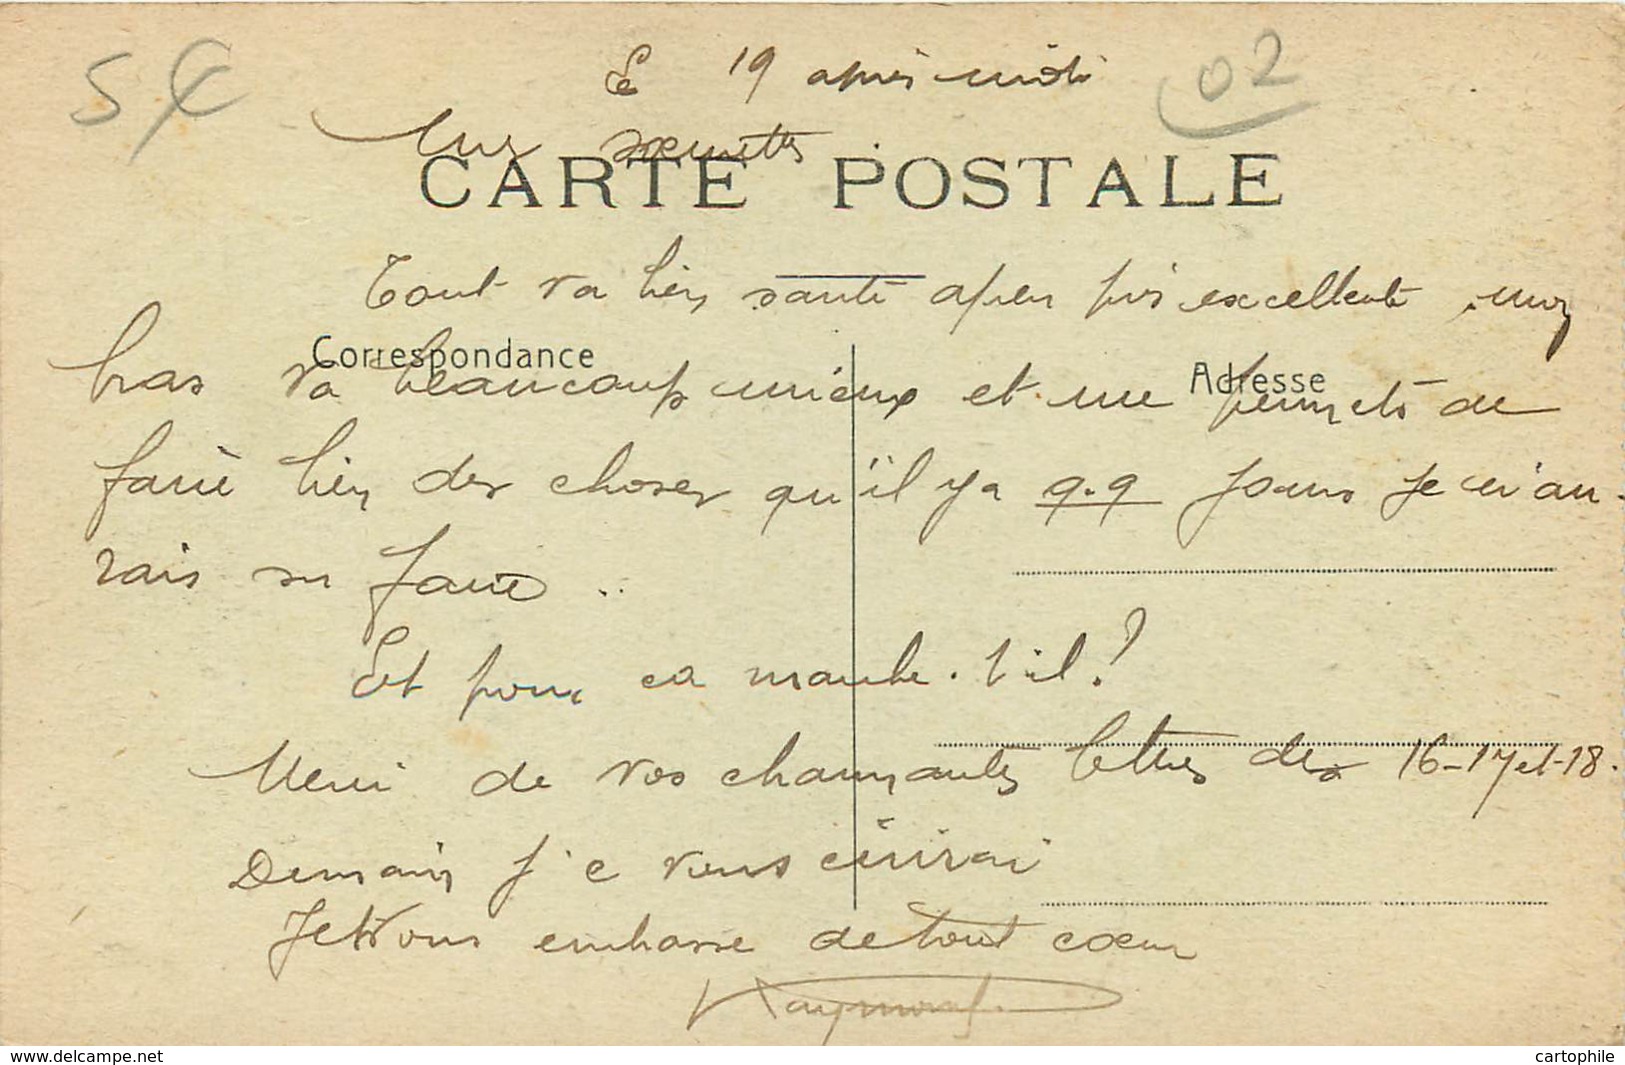 5€ 02
Le 19 après midi
CARTE POSTALE
Tout va bien santé à peu près excellente, mon
Correspondance
Adresse
bras va beaucoup mieux et me permets de
faire bien des choses qu'il y a q.q jours je n'au-
rais su faire ..
Et pour ca marche.t-il?
Merci de vos charmantes lettres des 16-17 et-18.
Demain je vous écrirai
Je vous embrasse de tout cœur
Raymond.
www.delcampe.net
cartophile